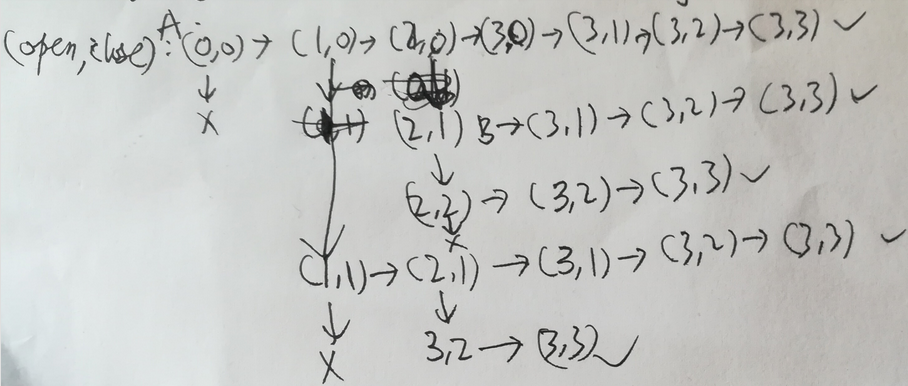 (open, close) A: (0,0) → (1,0) → (2,0) → (3,0) → (3,1) → (3,2) → (3,3) ✓
↓ ↓ ↓
X (2,1) B → (3,1) → (3,2) → (3,3) ✓
↓
(2,2) → (3,2) → (3,3) ✓
↓
X
(1,1) → (2,1) → (3,1) → (3,2) → (3,3) ✓
↓ ↓
X 3,2 → (3,3) ✓